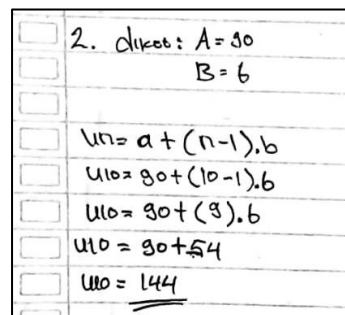 2. diket: A = 90
B = 6
Un = a + (n-1).b
U10 = 90 + (10-1).6
U10 = 90 + (9).6
U10 = 90 + 54
U10 = 144